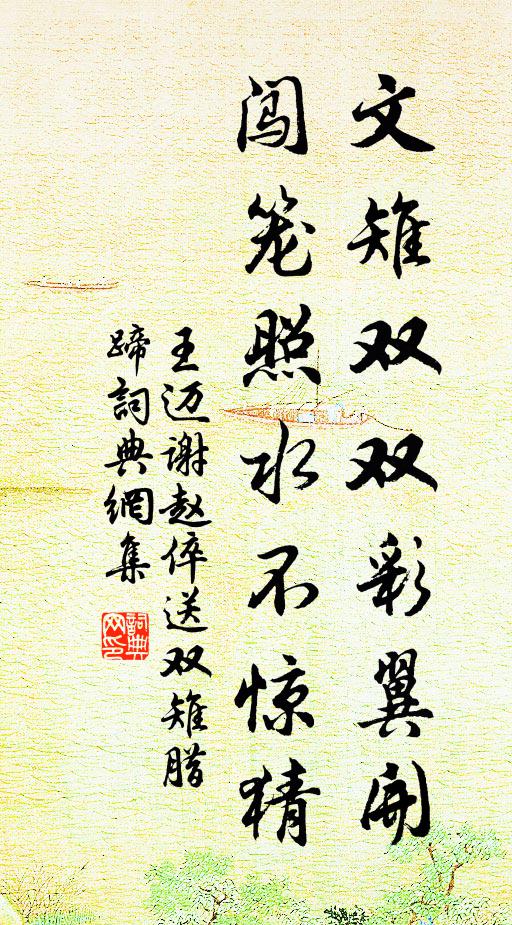 文雉双双彩翼开
闯笼照水不惊猜
王迈谢赵倅送双雉腊
蹄詞典網集
詞典网印